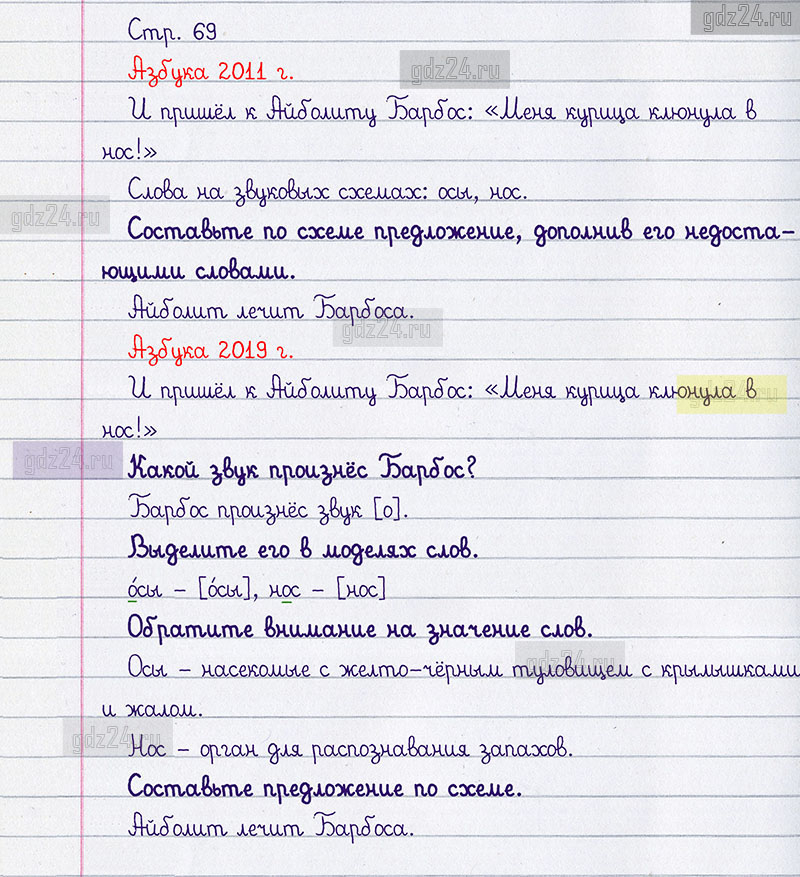 gdz24.ru
Стр. 69
Азбука 2011 г.
gdz24.ru
И пришёл к Айболиту Барбос: «Меня курица клюнула в
нос!»
Слова на звуковых схемах: осы, нос.
gdz24.ru
Составьте по схеме предложение, дополнив его недоста-
ющими словами.
Айболит лечит Барбоса.
gdz24.ru
Азбука 2019 г.
И пришёл к Айболиту Барбос: «Меня курица клюнула в
gdz24.ru
нос!»
gdz24.ru
Какой звук произнёс Барбос?
Барбос произнёс звук [о].
Выделите его в моделях слов.
о́сы – [о́сы], нос – [нос]
Обратите внимание на значение слов.
Осы – насекомые с желто-чёрным туловищем с крылышками
gdz24.ru
и жалом.
gdz24.ru
Нос – орган для распознавания запахов.
Составьте предложение по схеме.
Айболит лечит Барбоса.